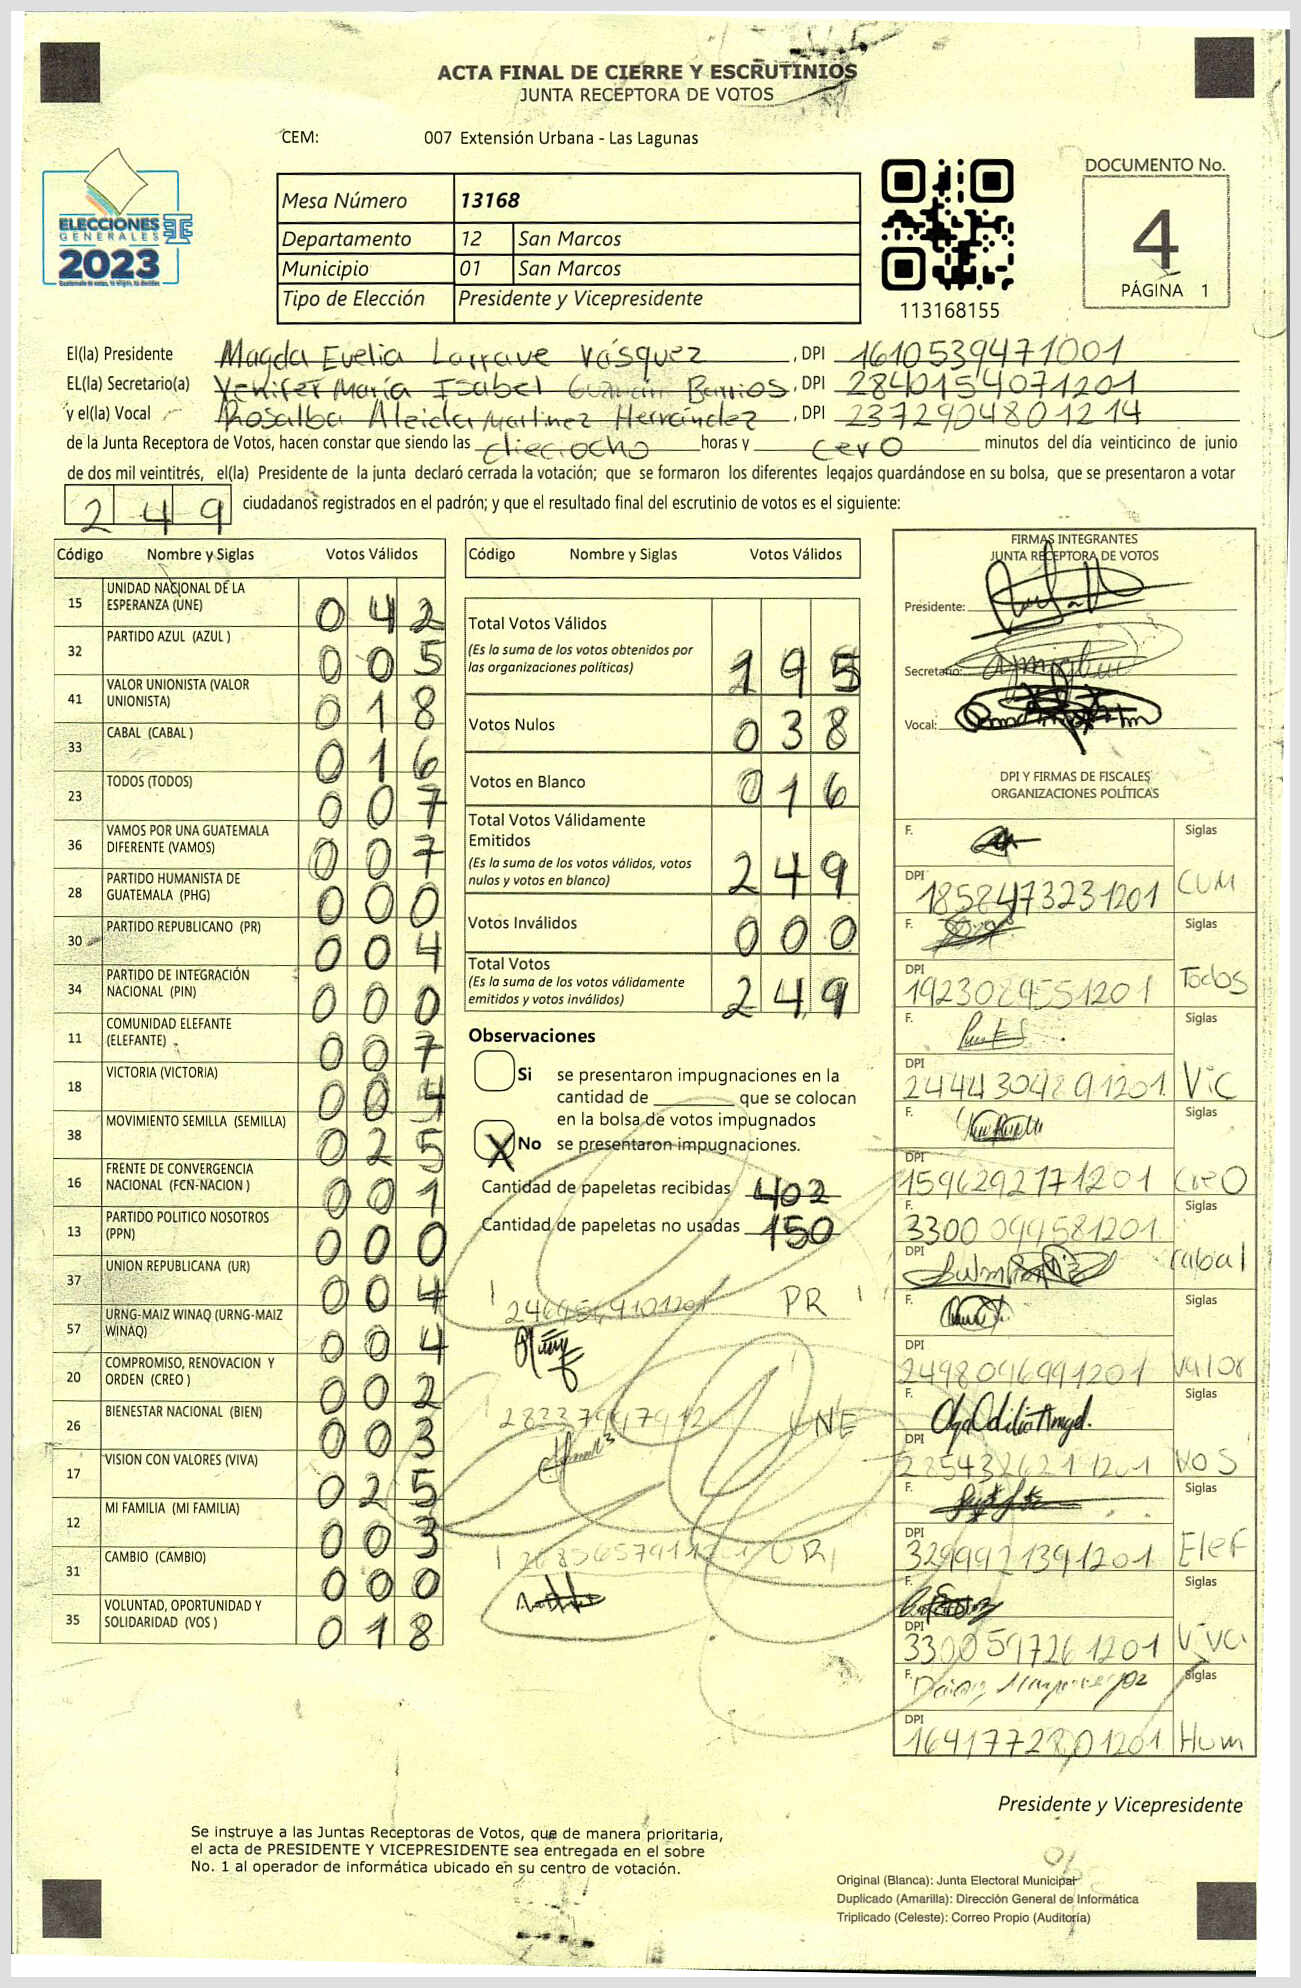 ACTA FINAL DE CIERRE Y ESCRUTINIOS
JUNTA RECEPTORA DE VOTOS
CEM: 007 Extensión Urbana - Las Lagunas
ELECCIONES
GENERALES
2023
Mesa Número 13168
Departamento 12 San Marcos
Municipio 01 San Marcos
Tipo de Elección Presidente y Vicepresidente
113168155
DOCUMENTO No.
4
PÁGINA 1
El(la) Presidente Magda Evelia Larrave Vásquez, DPI 1610539471001
EL(la) Secretario(a) Yenifer María Isabel Guzmán Barrios, DPI 2840154071201
y el(la) Vocal Rosalba Aleida Martinez Hernández, DPI 2372904801214
de la Junta Receptora de Votos, hacen constar que siendo las dieciocho horas y cero minutos del día veinticinco de junio
de dos mil veintitrés, el(la) Presidente de la junta declaró cerrada la votación; que se formaron los diferentes legajos guardándose en su bolsa, que se presentaron a votar
249 ciudadanos registrados en el padrón; y que el resultado final del escrutinio de votos es el siguiente:
Código Nombre y Siglas Votos Válidos
15 UNIDAD NACIONAL DE LA ESPERANZA (UNE) 042
32 PARTIDO AZUL (AZUL ) 005
41 VALOR UNIONISTA (VALOR UNIONISTA) 018
33 CABAL (CABAL ) 016
23 TODOS (TODOS) 007
36 VAMOS POR UNA GUATEMALA DIFERENTE (VAMOS) 007
28 PARTIDO HUMANISTA DE GUATEMALA (PHG) 000
30 PARTIDO REPUBLICANO (PR) 004
34 PARTIDO DE INTEGRACIÓN NACIONAL (PIN) 000
11 COMUNIDAD ELEFANTE (ELEFANTE) 007
18 VICTORIA (VICTORIA) 004
38 MOVIMIENTO SEMILLA (SEMILLA) 025
16 FRENTE DE CONVERGENCIA NACIONAL (FCN-NACION ) 001
13 PARTIDO POLITICO NOSOTROS (PPN) 000
37 UNION REPUBLICANA (UR) 004
57 URNG-MAIZ WINAQ (URNG-MAIZ WINAQ) 004
20 COMPROMISO, RENOVACION Y ORDEN (CREO ) 002
26 BIENESTAR NACIONAL (BIEN) 003
17 VISION CON VALORES (VIVA) 025
12 MI FAMILIA (MI FAMILIA) 003
31 CAMBIO (CAMBIO) 000
35 VOLUNTAD, OPORTUNIDAD Y SOLIDARIDAD (VOS ) 018
Código Nombre y Siglas Votos Válidos
Total Votos Válidos
(Es la suma de los votos obtenidos por
las organizaciones políticas) 195
Votos Nulos 038
Votos en Blanco 016
Total Votos Válidamente
Emitidos
(Es la suma de los votos válidos, votos
nulos y votos en blanco) 249
Votos Inválidos 000
Total Votos
(Es la suma de los votos válidamente
emitidos y votos inválidos) 249
Observaciones
Si se presentaron impugnaciones en la
cantidad de ________ que se colocan
en la bolsa de votos impugnados
X No se presentaron impugnaciones.
Cantidad de papeletas recibidas 402
Cantidad de papeletas no usadas 150
PR
UNE
UR
FIRMAS INTEGRANTES
JUNTA RECEPTORA DE VOTOS
Presidente:
Secretario:
Vocal:
DPI Y FIRMAS DE FISCALES
ORGANIZACIONES POLÍTICAS
F. Siglas
DPI 1858473231201 CUM
F. Siglas
DPI 1923089551201 Todos
F. Siglas
DPI 2444304891201 Vic
F. Siglas
DPI 1596292171201 CreO
F. Siglas
3300099581201
DPI Cabal
F. Siglas
DPI 2498096991201 Valor
F. Siglas
Olga Odilia Angel.
DPI VOS
F. Siglas
DPI 3299921391201 Elef
F. Siglas
DPI 3300597261201 Viva
F. Siglas
DPI 1641772801201 Hum
Presidente y Vicepresidente
Se instruye a las Juntas Receptoras de Votos, que de manera prioritaria,
el acta de PRESIDENTE Y VICEPRESIDENTE sea entregada en el sobre
No. 1 al operador de informática ubicado en su centro de votación.
Original (Blanca): Junta Electoral Municipal
Duplicado (Amarilla): Dirección General de Informática
Triplicado (Celeste): Correo Propio (Auditoría)